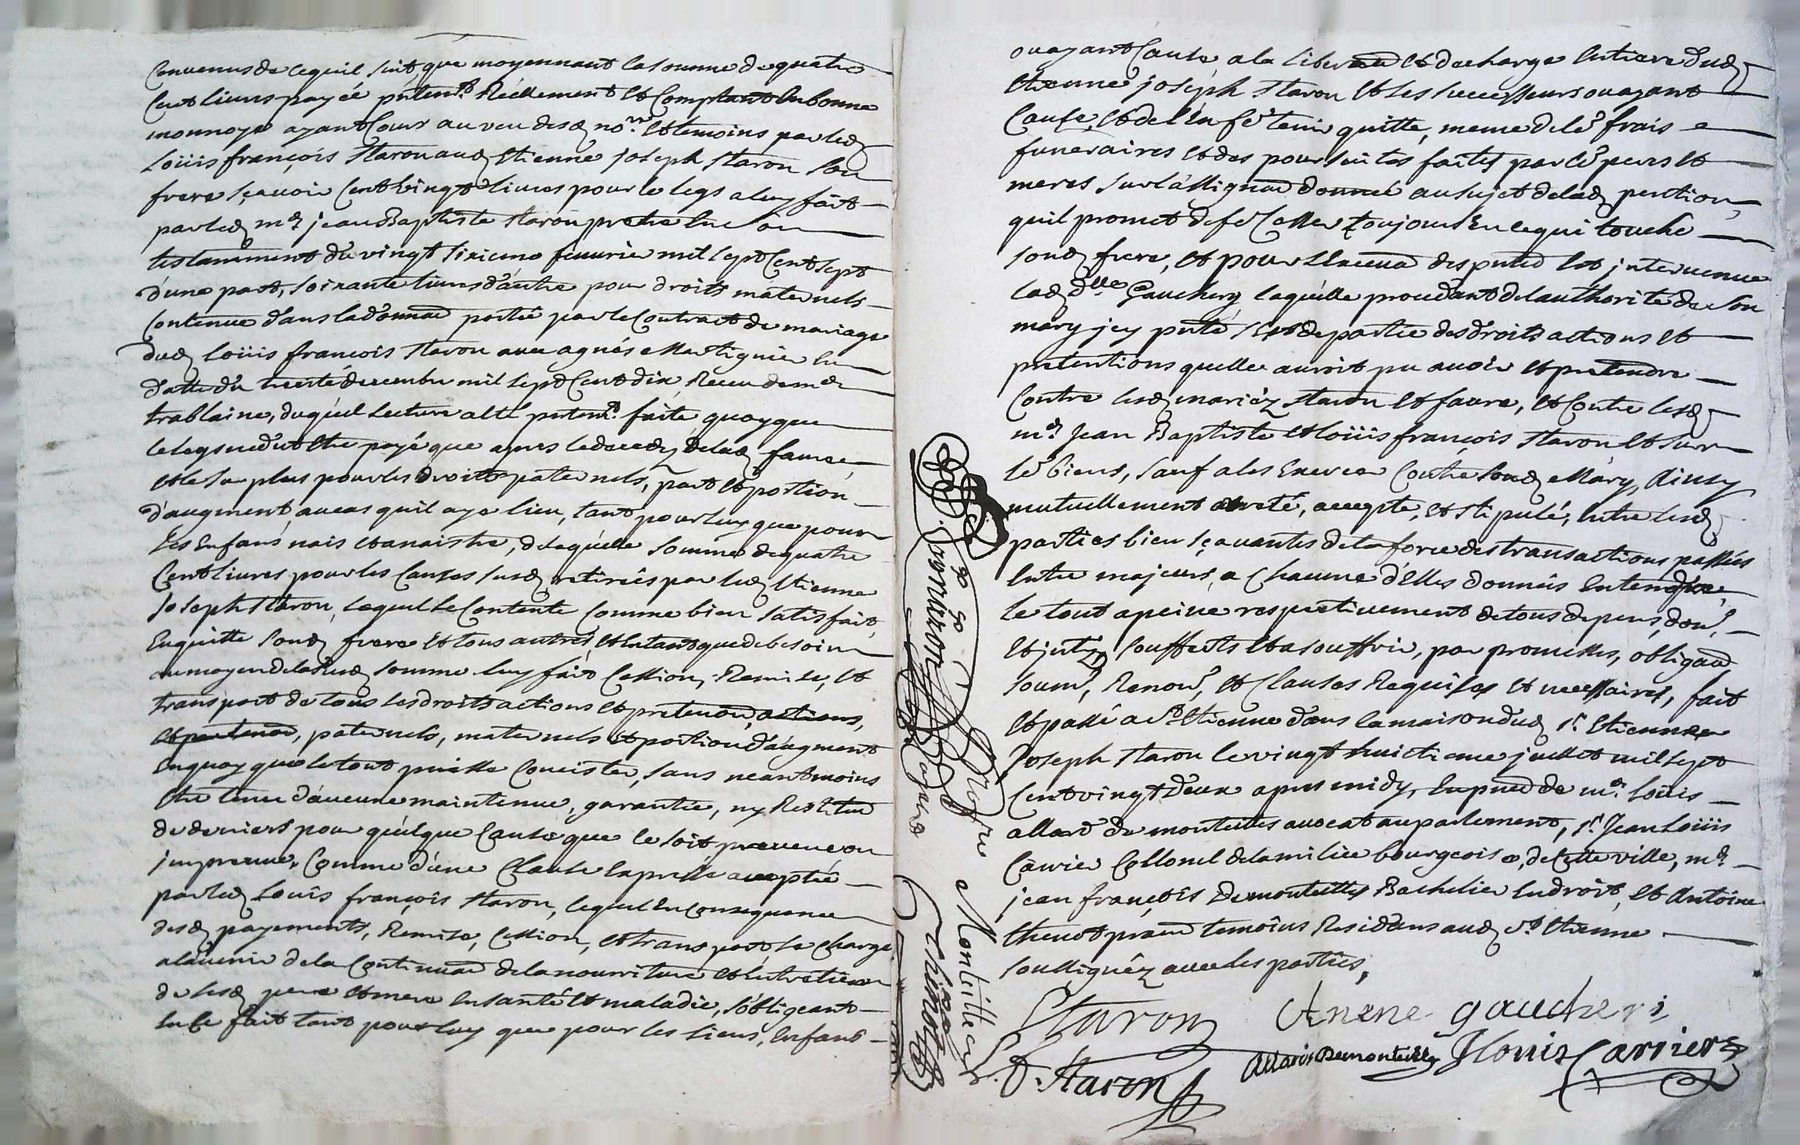 Convenus de ce quil suit, que moyennant la somme de quatre
Cent livres payée presentemt. Réellement et Comptant en bonne
monnoye ayant Cours au veu desd. nore. et temoins par led.
Loüis françois Staron aud. Etienne joseph Staron son
frere sçavoir Cent vingt livres pour le legs a luy fait
par led. mre. jean Baptiste Staron pretre en son
testamment du vingt sixieme fevrier mil sept Cent sept
d'une part, soixante livres d'autre pour droits maternels
Contenue dans la donnaon portée par le Contract de mariage
dud. loüis françois Staron avec agnés Martignier en
datte du trente decembre mil sept Cent dix Receu de me.
trablaine, duquel lecture a été presentt. faite, quoyque
le legs ne dut etre payé que apres le deced. de lad. faure,
et le surplus pour les droits paternels, part et portion
d'augment au cas qu'il aye lieu, tant pour luy que pour
ses Enfans nais et a naistre, de laquelle somme de quatre
Cent livres pour les Causes susd. retirées par led. Etienne
Joseph Staron, lequel se Contente Comme bien satisfait,
En quitte sond. frere et tous autres et En tant que de besoin
au moyen de lasusd. somme luy fait Cession, Remise, et
transport de tous ses droits actions et pretenon, actions,
et pretenon, paternels, maternels et portion d'augment
En quoy que le tout puisse Concister, sans neantmoins
Etre tenu d'aucune maintenue, garantie, ny Restituon
de deniers pour quelque Cause que ce soit preveue ou
impreveue, Comme d'une Clause Expresse acceptée
par led. Louis françois Staron, lequel En Consequence
desd. payements, Remise, Cession, et transport se Charge
a lavenir de la Continuaon de la nourriture et Entretien
de sesd. pere et mere En santé et maladie, s'obligeant
En ce fait tant pour luy que pour les siens, Enfans
ou ayant Cause a la liberaon et decharge Entiere dud.
Etienne joseph Staron et ses successeurs ou ayant
Cause, et de l'En fe. tenir quitte, meme de ls. frais
funeraires et des poursuites faites par ls. peres et
meres sur l'assignaon donneé au sujet de lad. pention,
quil promet de fe. Cesser toujours En ce qui touche
sond. frere, et pour s est intervenue
lad. dlle. Gauchery laquelle procedant de lauthorité de son
mary jcy prnt. s'est departie des droits actions et
pretentions quelle auroit pu avoir et pretendre
Contre lesd. mariéz Staron et faure, et Contre lesd.
mre. Jean Baptiste et loüis françois Staron et sur
ls. biens, sauf a les Exercer Contre sond. Mary, Ainsy
mutuellement areté, accepté, et stipulé, Entre lesd.
parties bien sçavantes de la force des transactions passées
Entre majeurs, a Chacune d'Elles donnés Entendre,
le tout a peine respectivement de tous depens, dom.
et jnts. soufferts et a souffrir, par promesses, obligaon
soumn. Renonn. et Clauses Requises et necessaires, fait
et passé a St. Etienne dans la maison dud. sr. Etienne
Joseph Staron le vingt huictieme juillet mil sept
Cent vingt deux apres midy, En pnce de me. loüis
allard de monteilles avocat au parlement, sr. Jean Loüis
Carrier Collonel de la milice bourgeoise, de Cette ville, me.
jean françois Demonteilles Bachelier En droit, et Antoine
thenot praen temoins Residans aud. St. Etienne
soussignéz avec les parties,
Staron
Anne gaucheri
Allard Demonteilles
J Louis Carrier
D. Staron
Monteilles